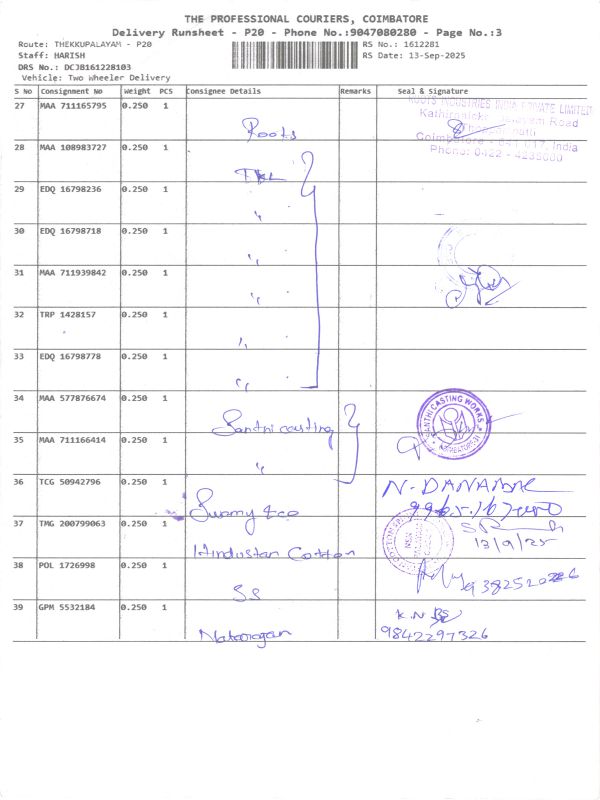 THE PROFESSIONAL COURIERS, COIMBATORE
Delivery Runsheet - P20 - Phone No.:9047080280 - Page No.:3
Route: THEKKUPALAYAM - P20
RS No.: 1612281
Staff: HARISH
RS Date: 13-Sep-2025
DRS No.: DCJB161228103
Vehicle: Two Wheeler Delivery
S No Consignment No Weight PCS Consignee Details Remarks Seal & signature
27 MAA 711165795 0.250 1 Roots
ROOTS INDUSTRIES INDIA PRIVATE LIMITED
Road
Coimbatore - 641 017, India
Phone: 0422 - 4235000
28 MAA 108983727 0.250 1
29 EDQ 16798236 0.250 1 "
30 EDQ 16798718 0.250 1 "
31 MAA 711939842 0.250 1 "
32 TRP 1428157 0.250 1 "
33 EDQ 16798778 0.250 1 "
34 MAA 577876674 0.250 1 Santhi casting
SANTHI CASTING WORKS
35 MAA 711166414 0.250 1 "
36 TCG 50942796 0.250 1
N. DANABAL
37 TMG 200799063 0.250 1 Hindustan Cotton
13/9/25
38 POL 1726998 0.250 1 SS
39 GPM 5532184 0.250 1 Natarajan
K.N
9842297326